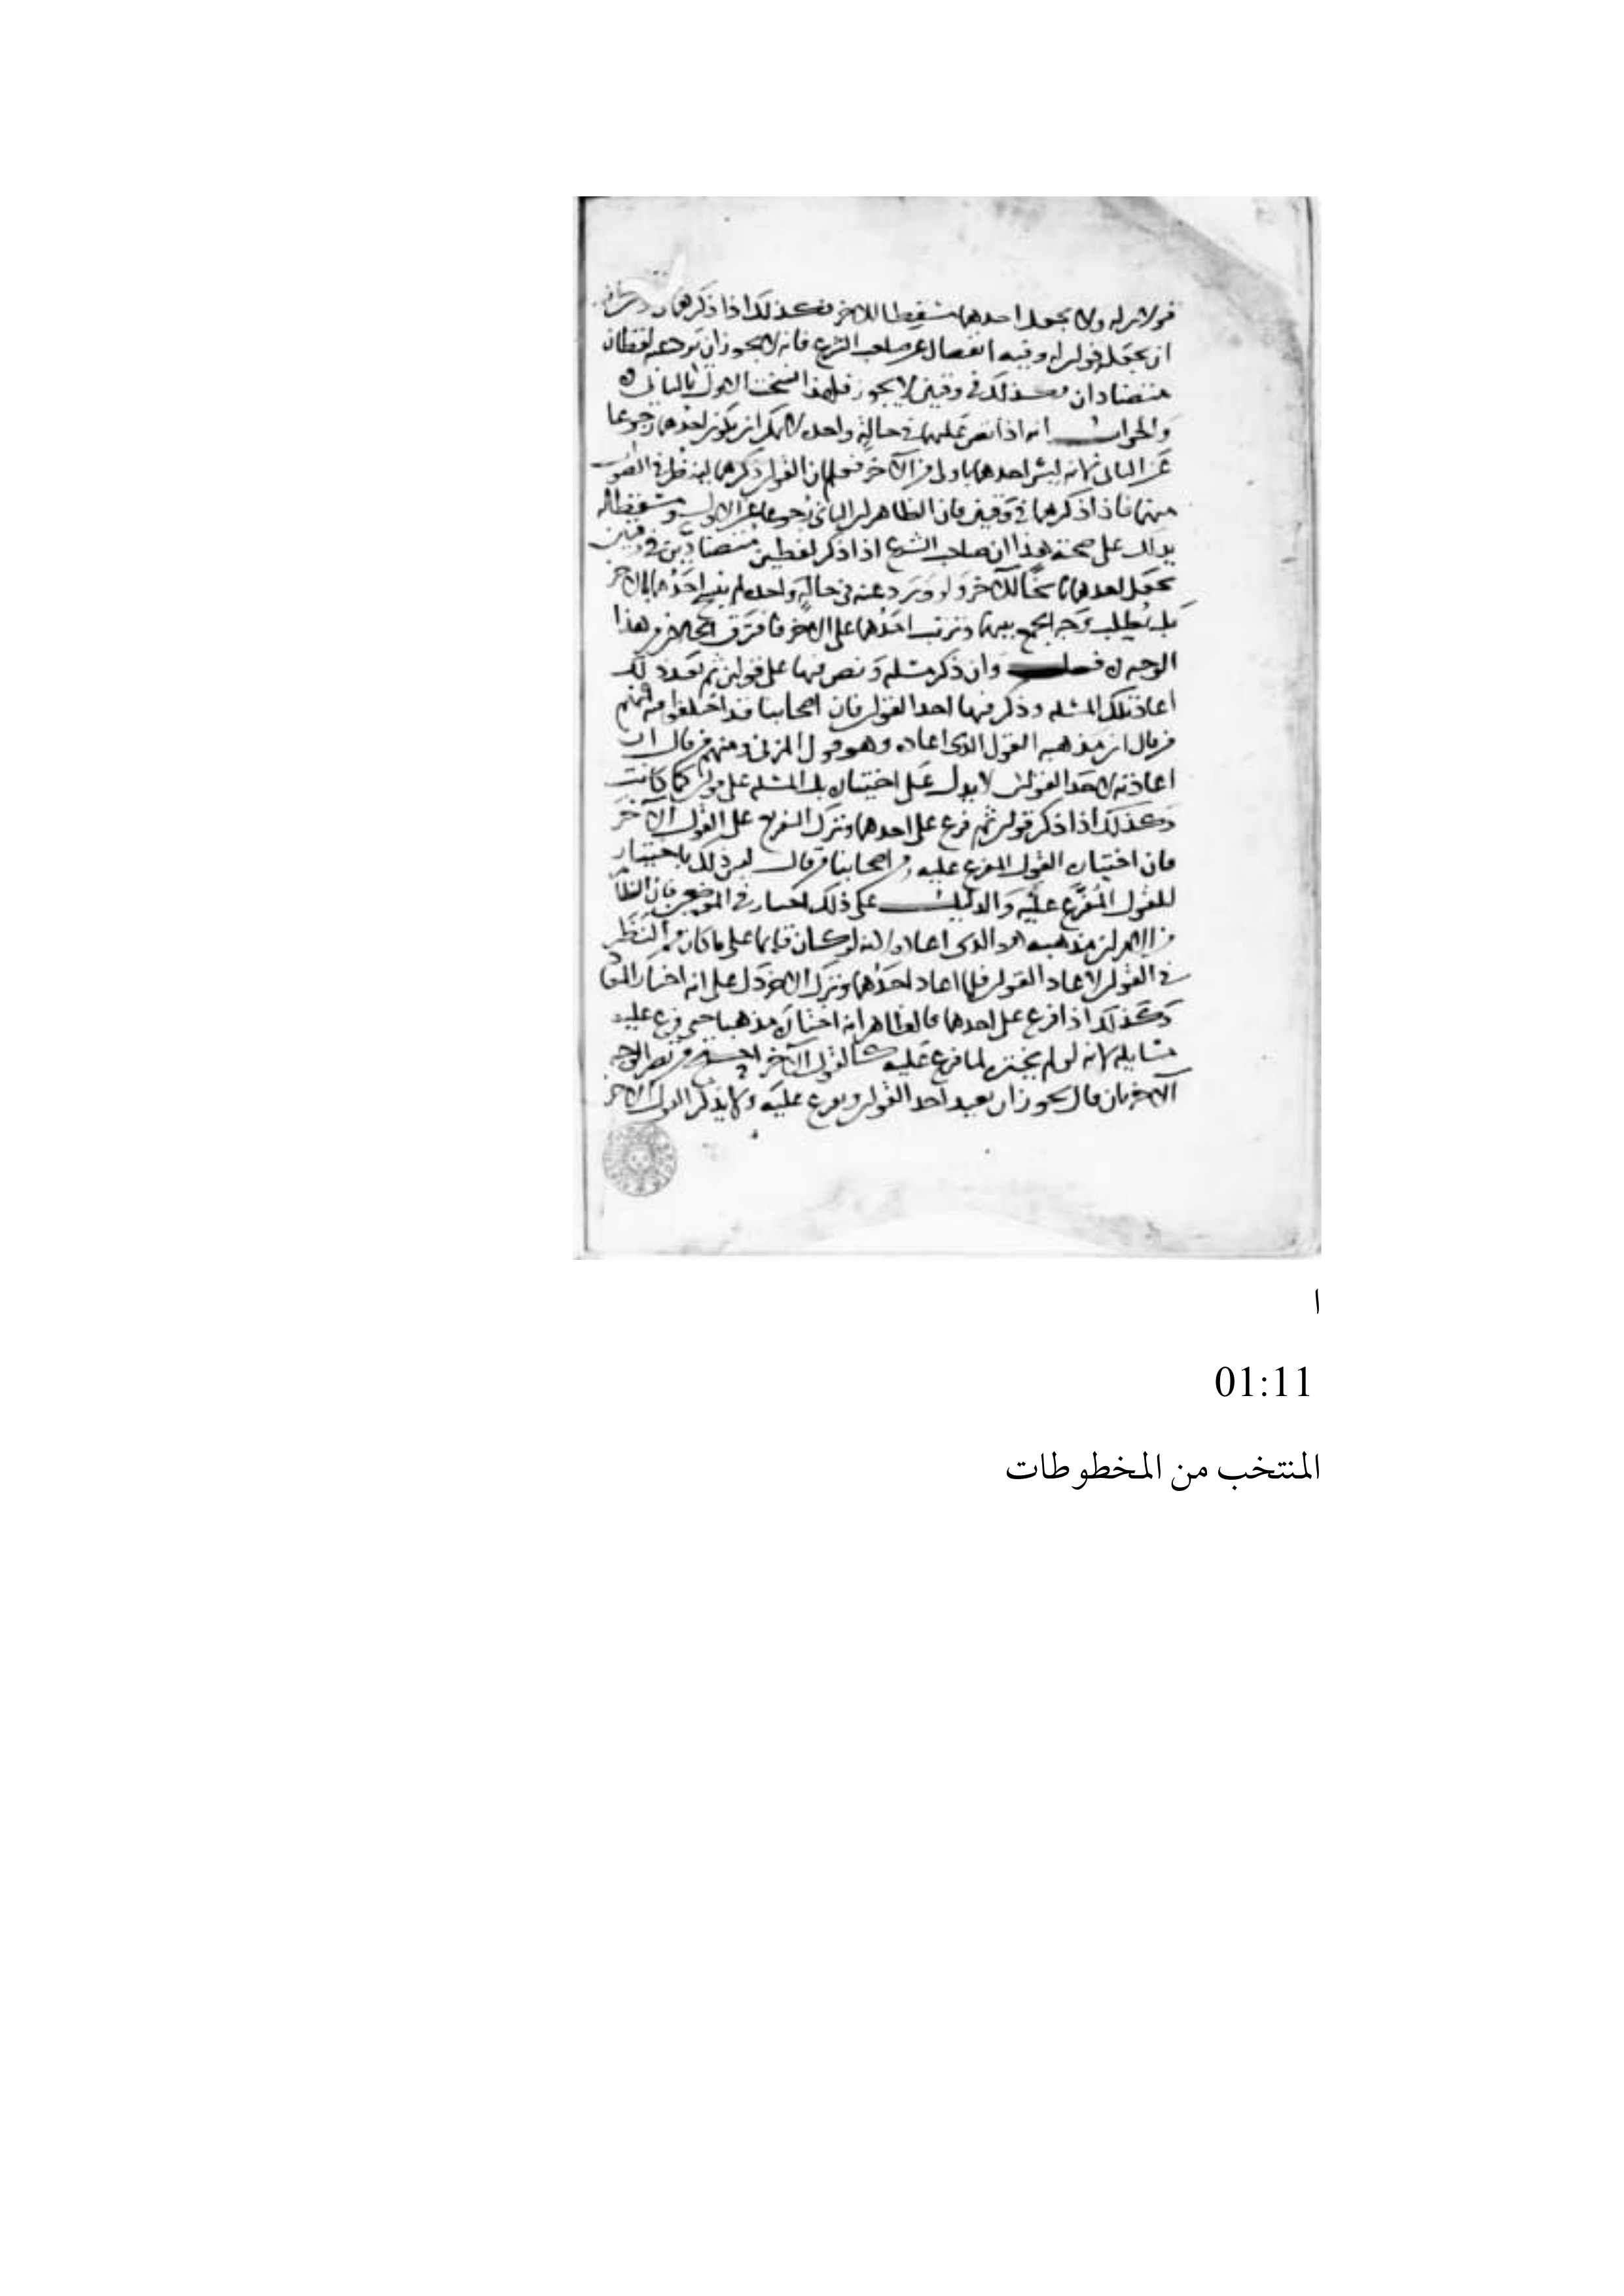 قولان له ولا يجعل احدهما مسقطا للاخر فكذلك اذا ذكرهما
ان يجعلا قولين له وفيه انفصال عن صاحب الشرع فانه لا يجوز ان يرد عنه لفظان
متضادان وكذلك في وقتين لا يجوز فلهذا نسخت الاول بالثاني
والجواب انه اذا نص عليهما في حالة واحدة لا يمكن ان يكون احدهما رجوعا
عن الثاني لانه ليس احدهما باولى من الآخر فعلم ان القولين ذكرهما لينظر في الصواب
منهما فاذا ذكرهما في وقتين فان الظاهر ان الثاني رجوعا عن الاول ومسقط له
يدلك على صحة هذا ان صاحب الشرع اذا ذكر لفظين متضادين في وقتين
يجعل احدهما ناسخا للآخر ولو ورد عنه في حالة واحدة لم ينسخ احدهما بالاخر
بل يطلب وجه الجمع بينهما وترتيب احدهما على الاخر فافترق الحالان من هذا
الوجه فصل وان ذكر مسئلة ونص فيها على قولين ثم بعد ذلك
اعاد تلك المسئلة وذكر فيها احد القولين فان اصحابنا قد اختلفوا فيه فمنهم
من قال ان مذهبه القول الذي اعاده وهو قول المزني ومنهم من قال ان
اعادته لاحد القولين لا يدل على اختياره بل المسئلة على قولين كما كانت
وكذلك اذا ذكر قولين ثم فرع على احدهما وترك التفريع على القول الآخر
فان اختياره القول المفرع عليه ومن اصحابنا من قال ليس ذلك باختيار
للقول المفرع عليه والدليل على ذلك في الموضعين فان الظاهر
ان مذهبه هو الذي اعاده لانه لو كان قايما على ما كان من النظر
في القولين لاعاد القولين فلما اعاد احدهما وترك الاخر دل على انه اختار المعاد
وكذلك اذا فرع على احدهما فالظاهر انه اختاره مذهبا حتى فرع عليه
مسايله لانه لو لم يختره لما فرع عليه
الآخر فان قال يجوز ان يعيد احد القولين ويفرع عليه ولا يذكر القول الآخر
ا
01:11
المنتخب من المخطوطات